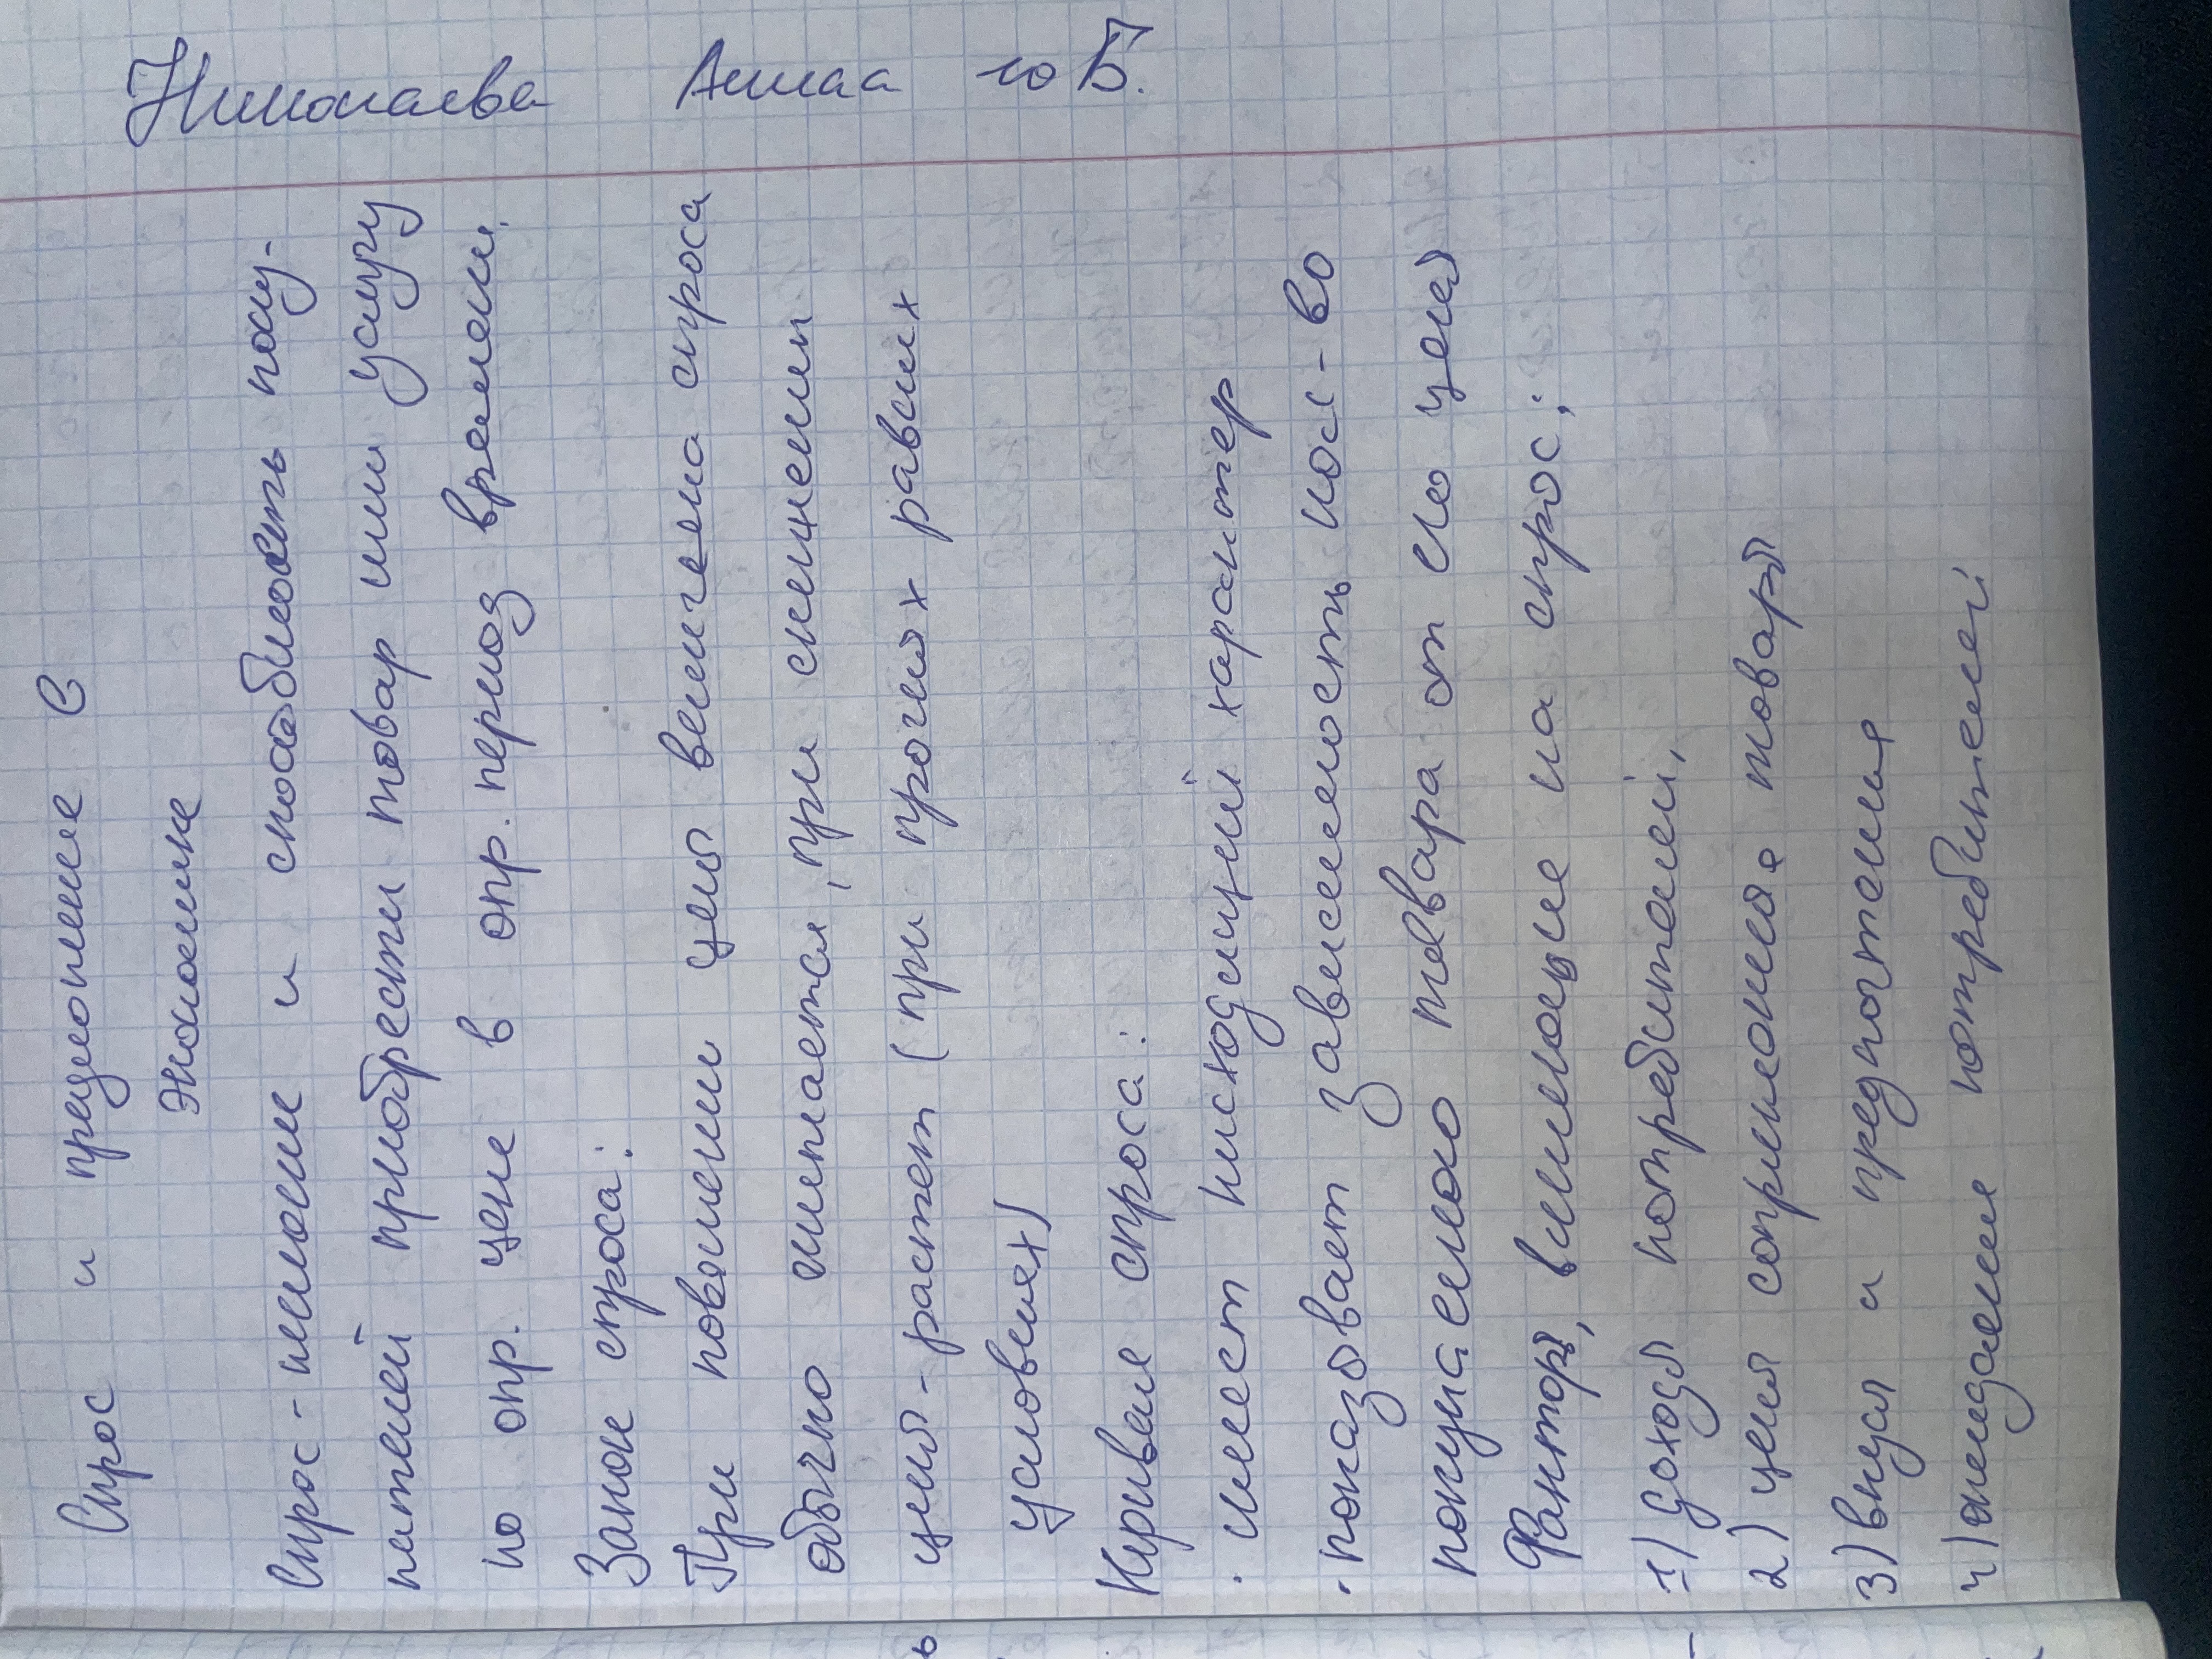 Николаева Анна 10 Б.
Спрос и предложение в
экономике
Спрос - желание и способность поку-
пателей приобрести товар или услугу
по опр. цене в опр. период времени.
Закон спроса:
При повышении цены величина спроса
обычно снижается, при снижении
цены - растет (при прочих равных
условиях)
Кривая спроса:
· имеет нисходящий характер
· показывает зависимость кол-во
покупаемого товара от его цены
Факторы, влияющие на спрос:
1) доходы потребителей,
2) цены сопряженные товары
3) вкусы и предпочтения
4) ожидание потребителей